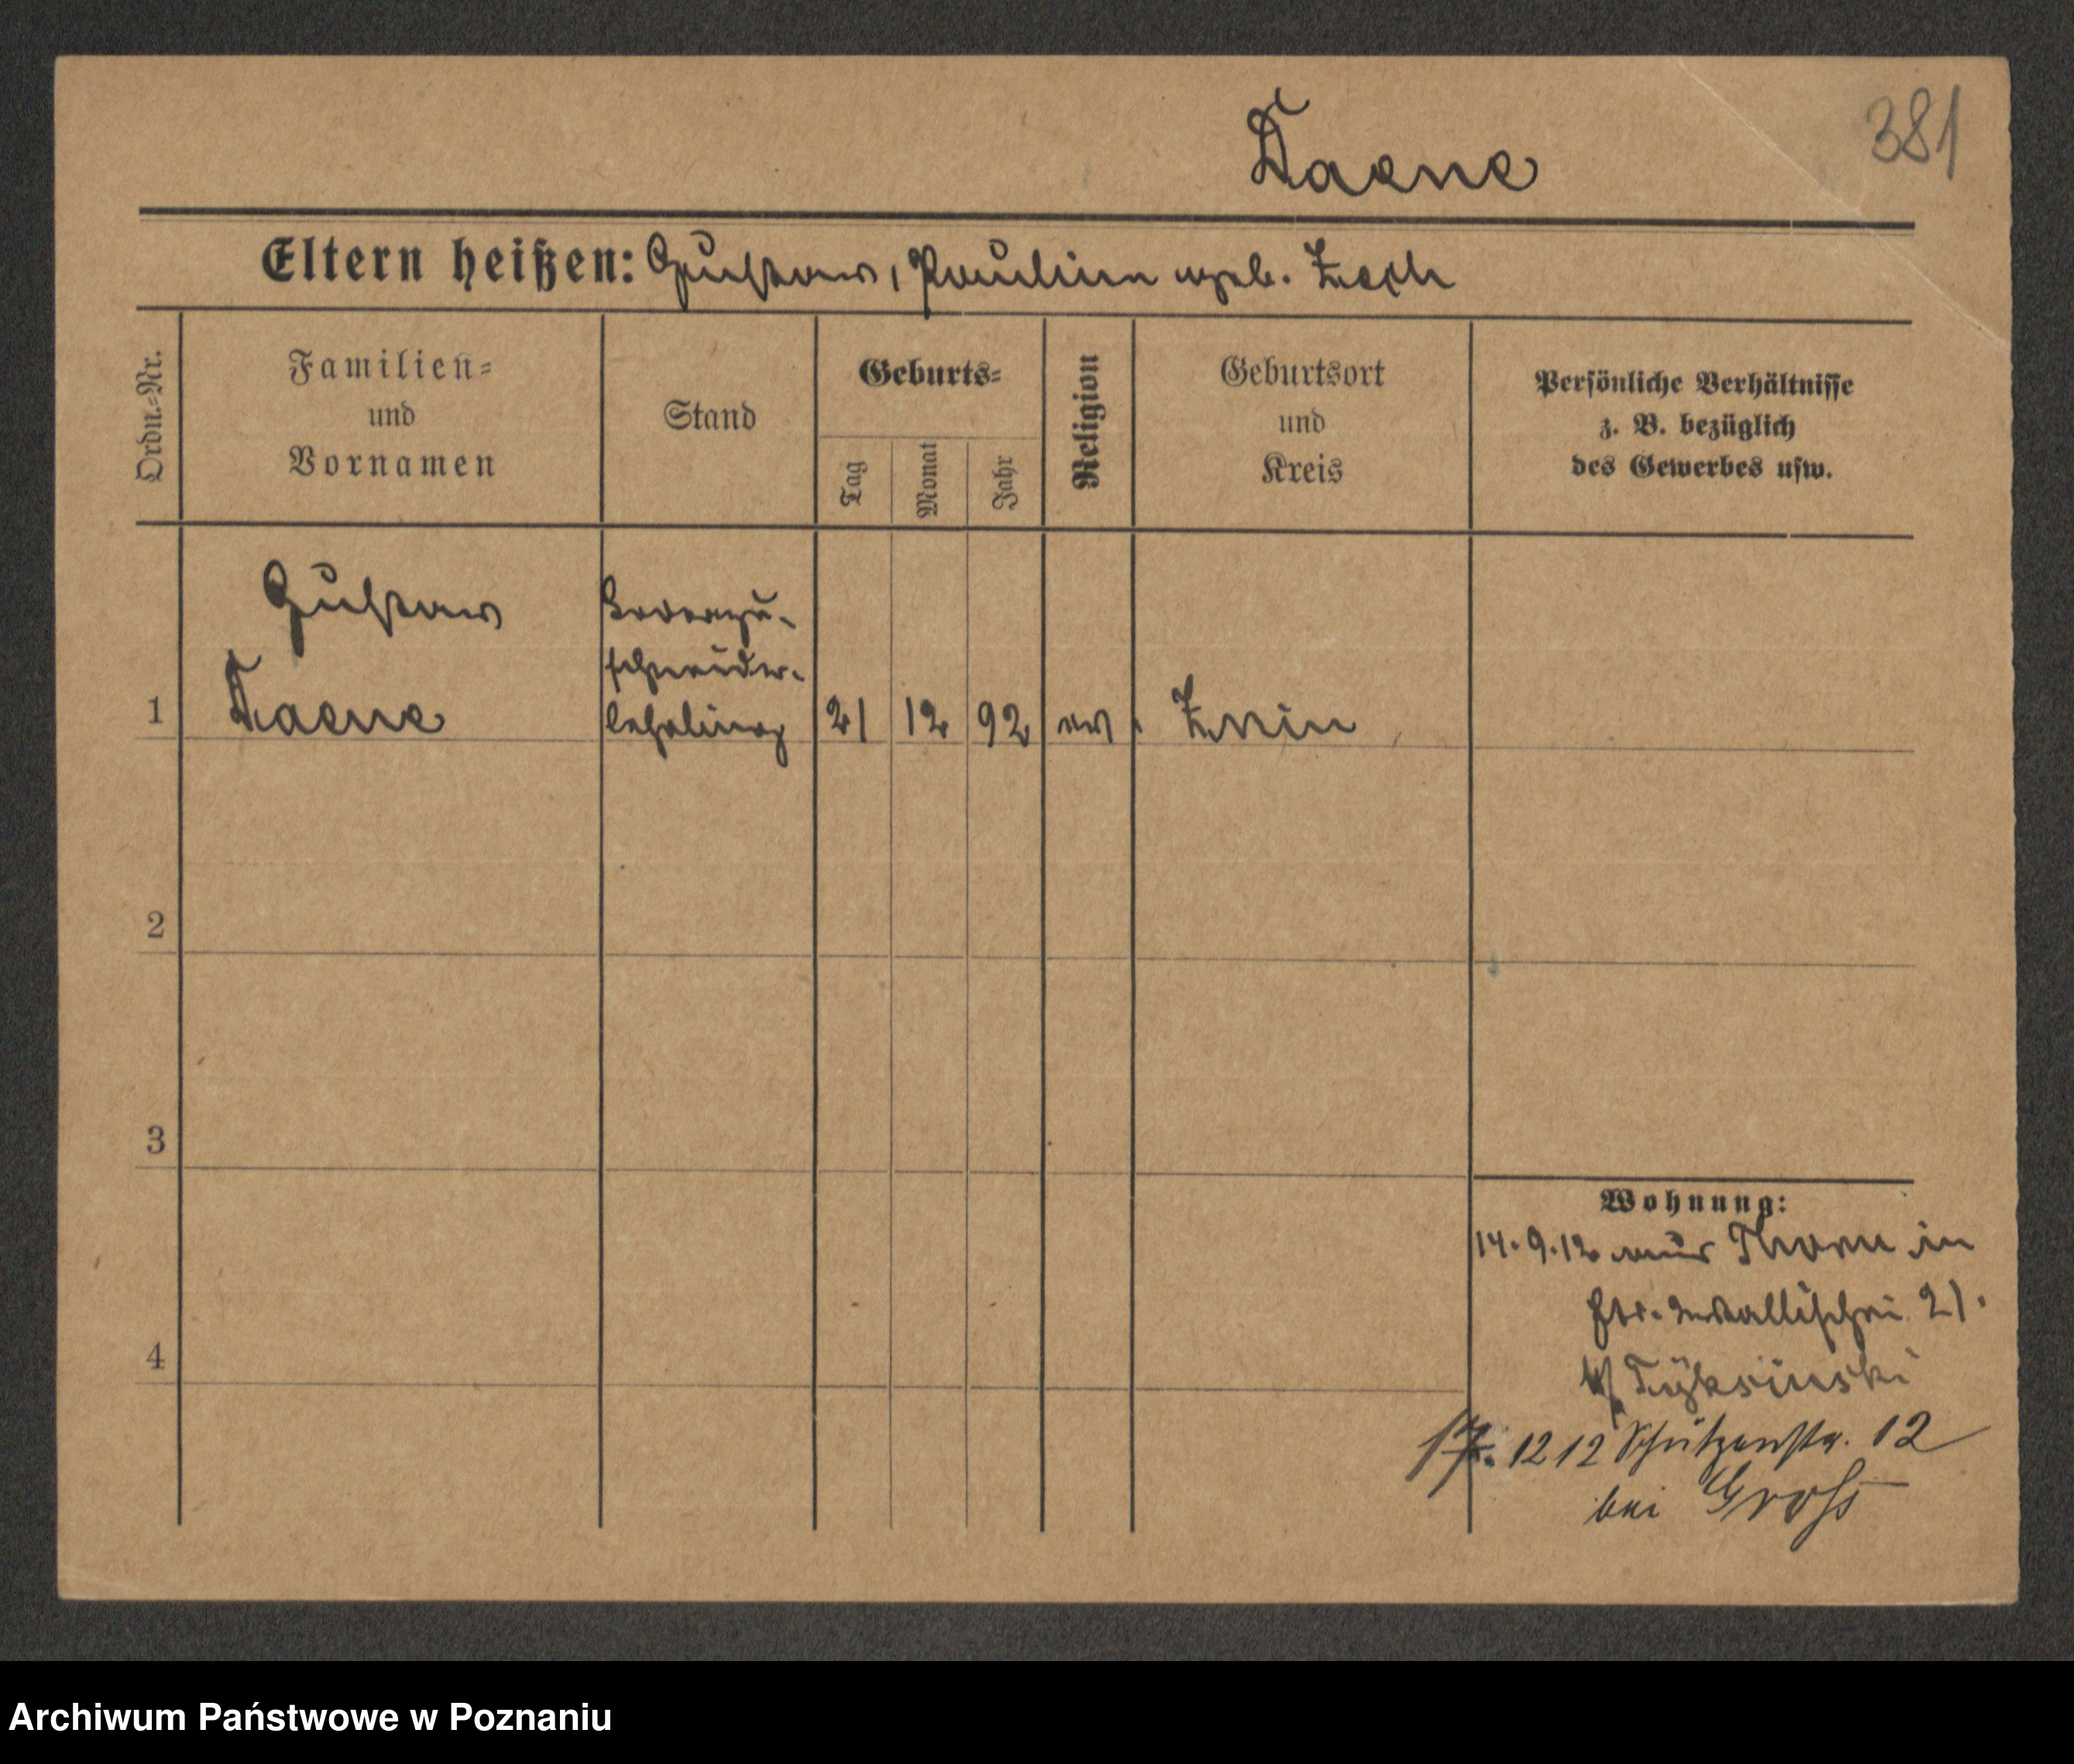 381
Daene
Eltern heißen: Gustav, Pauline geb. Zech
Ordn.=Nr.
Familien=
und
Vornamen
Stand
Geburts=
Tag
Monat
Jahr
Religion
Geburtsort
und
Kreis
Persönliche Verhältnisse
z. B. bezüglich
des Gewerbes usw.
1
Gustav
Daene
zu-
schneider-
lehrling
21
12
92
ev
Znin
2
3
4
Wohnung:
14.9.12 aus Thorn in
Wallischei 21.
b/
17. 12 12 Schützenstr. 12
bei Groß
Archiwum Państwowe w Poznaniu